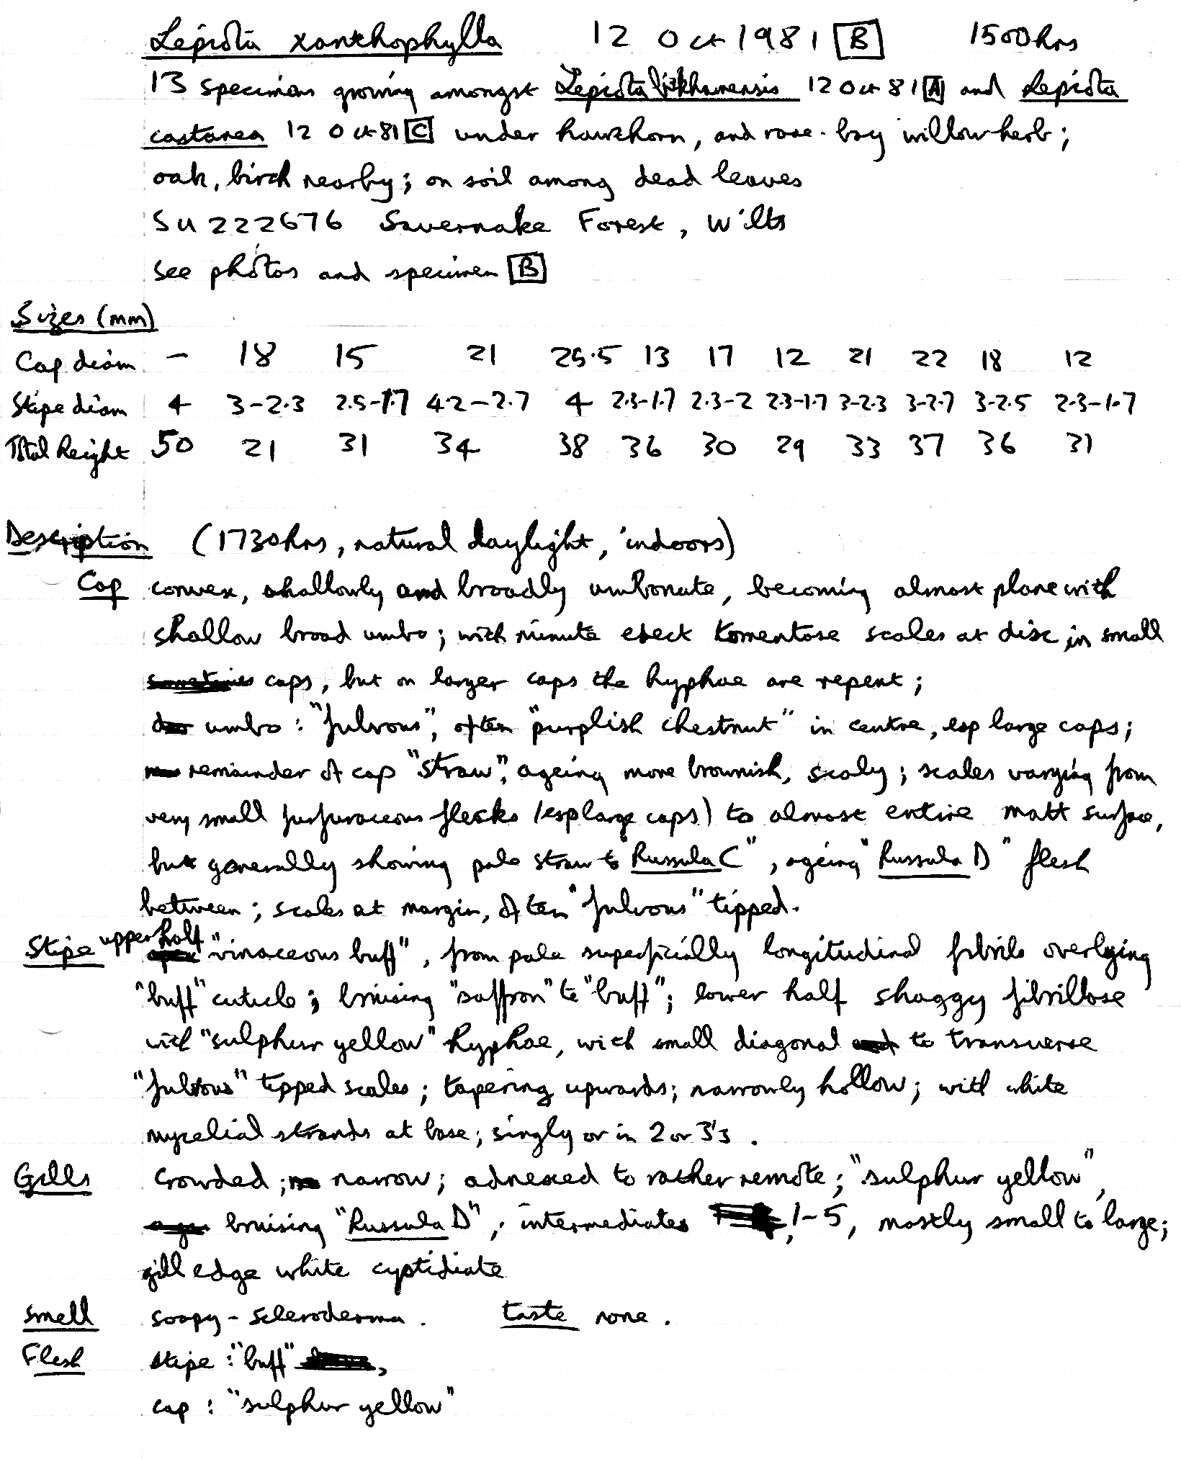 Lepiota xanthophylla 12 Oct 1981 [B] 1500hrs
13 specimens growing amongst Lepiota 12 Oct 81 [A] and Lepiota
castanea 12 Oct 81 [C] under hawthorn, and rose-bay willow herb;
oak, birch nearby; on soil among dead leaves
SU 222676 Savernake Forest, Wilts
see photos and specimen [B]
Sizes (mm)
Cap diam – 18 15 21 25.5 13 17 12 21 22 18 12
Stipe diam 4 3-2.3 2.5-1.7 4.2-2.7 4 2.3-1.7 2.3-2 2.3-1.7 3-2.3 3-2.7 3-2.5 2.3-1.7
Total height 50 21 31 34 38 36 30 29 33 37 36 31
Description (1730hrs, natural daylight, indoors)
Cap convex, shallowly and broadly umbonate, becoming almost plane with
shallow broad umbo; with minute erect tomentose scales at disc in small
caps, but on larger caps the hyphae are repent;
umbo: "fulvous", often "purplish chestnut" in centre, esp large caps;
remainder of cap "straw", ageing more brownish, scaly; scales varying from
very small furfuraceous flecks (esp large caps) to almost entire matt surface,
but generally showing pale straw to "Russula C", ageing "Russula D" flesh
between; scales at margin, often "fulvous" tipped.
Stipe upper half "vinaceous buff", from pale superficially longitudinal fibrils overlying
"buff" cuticle; bruising "saffron" to "buff"; lower half shaggy fibrillose
with "sulphur yellow" hyphae, with small diagonal to transverse
"fulvous" tipped scales; tapering upwards; narrowly hollow; with white
mycelial strands at base; singly or in 2 or 3's.
Gills crowded; narrow; adnexed to rather remote; "sulphur yellow",
bruising "Russula D"; intermediates 1-5, mostly small to large;
gill edge white cystidiate
Smell soapy - scleroderma. taste none.
Flesh stipe: "buff",
cap: "sulphur yellow"